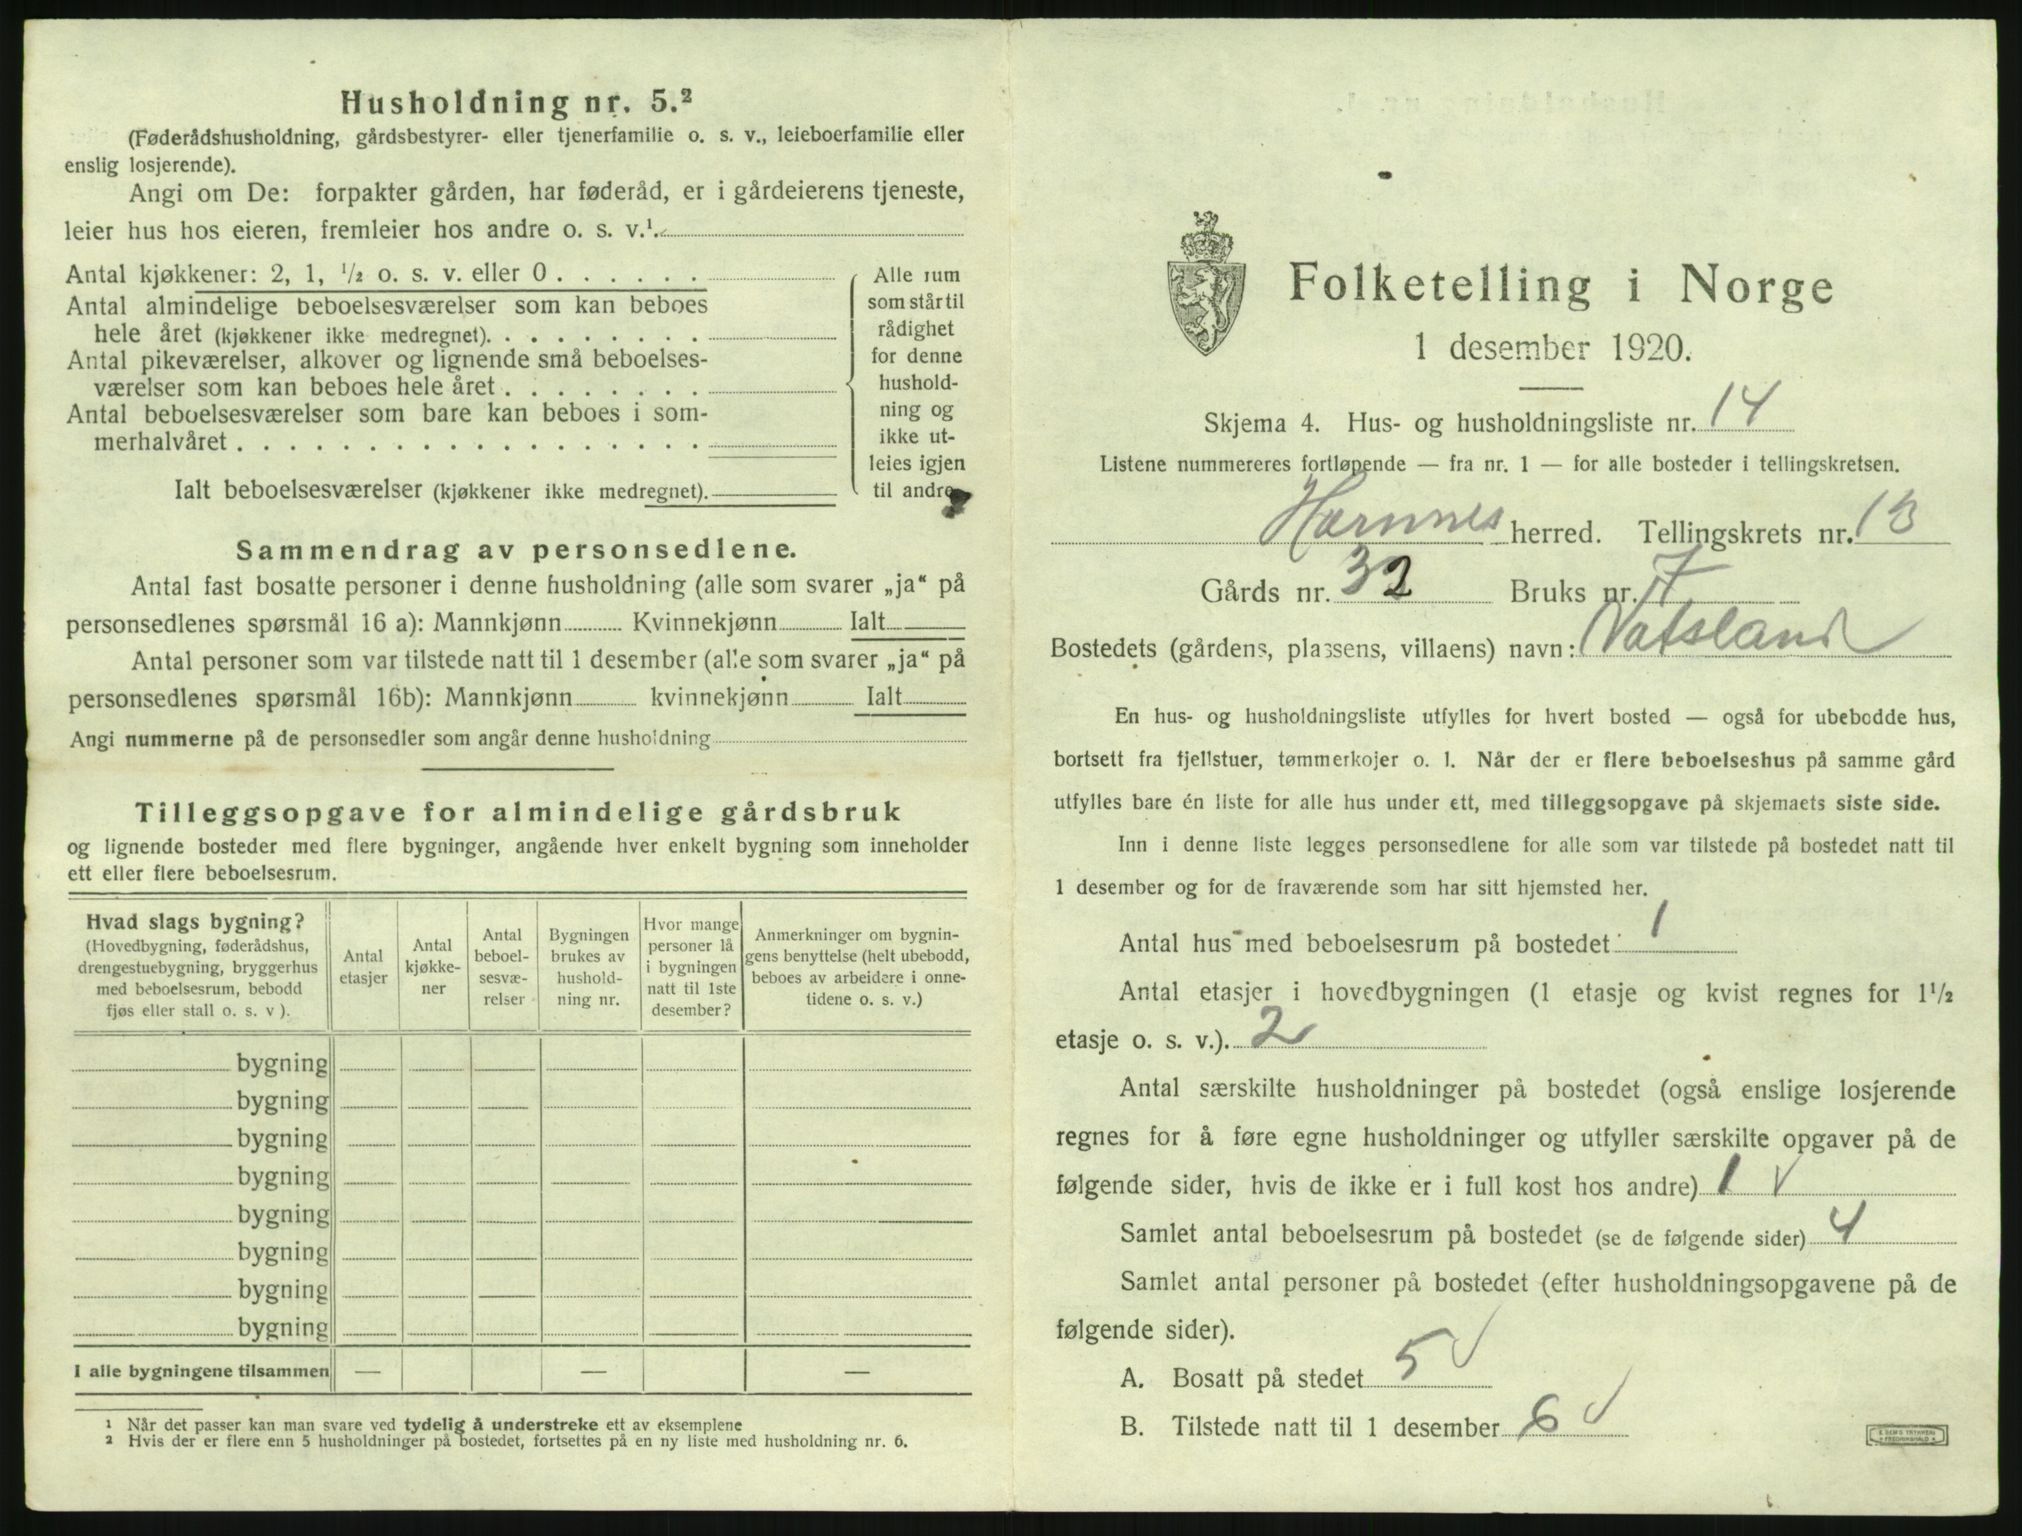 Husholdning nr. 5.²
(Føderådshusholdning, gårdsbestyrer- eller tjenerfamilie o. s. v., leieboerfamilie eller
enslig losjerende).
Angi om De: forpakter gården, har føderåd, er i gårdeierens tjeneste,
leier hus hos eieren, fremleier hos andre o. s. v.¹.
Antal kjøkkener: 2, 1, ½ o. s. v. eller 0 . . . . . .
Antal almindelige beboelsesværelser som kan beboes
hele året (kjøkkener ikke medregnet). . . . . . . . .
Antal pikeværelser, alkover og lignende små beboelses-
værelser som kan beboes hele året . . . . . . . .
Antal beboelsesværelser som bare kan beboes i som-
merhalvåret . . . . . . . . . . . . . . . . . .
Ialt beboelsesværelser (kjøkkener ikke medregnet).
Alle rum
som står til
rådighet
for denne
hushold-
ning og
ikke ut-
leies igjen
til andre
Sammendrag av personsedlene.
Antal fast bosatte personer i denne husholdning (alle som svarer „ja“ på
personsedlenes spørsmål 16 a): Mannkjønn Kvinnekjønn Ialt
Antal personer som var tilstede natt til 1 desember (alle som svarer „ja“ på
personsedlenes spørsmål 16b): Mannkjønn kvinnekjønn Ialt
Angi nummerne på de personsedler som angår denne husholdning
Tilleggsopgave for almindelige gårdsbruk
og lignende bosteder med flere bygninger, angående hver enkelt bygning som inneholder
ett eller flere beboelsesrum.
Hvad slags bygning?
(Hovedbygning, føderådshus,
drengestuebygning, bryggerhus
med beboelsesrum, bebodd
fjøs eller stall o. s. v ).
Antal
etasjer
Antal
kjøkke-
ner
Antal
beboel-
sesvæ-
relser
Bygningen
brukes av
hushold-
ning nr.
Hvor mange
personer lå
i bygningen
natt til 1ste
desember?
Anmerkninger om bygnin-
gens benyttelse (helt ubebodd,
beboes av arbeidere i onne-
tidene o. s. v.)
bygning
bygning
bygning
bygning
bygning
bygning
bygning
bygning
I alle bygningene tilsammen — — —
¹ Når det passer kan man svare ved tydelig å understreke ett av eksemplene
² Hvis der er flere enn 5 husholdninger på bostedet, fortsettes på en ny liste med husholdning nr. 6.
Folketelling i Norge
1 desember 1920.
Skjema 4. Hus- og husholdningsliste nr. 14
Listene nummereres fortløpende — fra nr. 1 — for alle bosteder i tellingskretsen.
Hornnes herred. Tellingskrets nr. 13
Gårds nr. 32 Bruks nr. 7
Bostedets (gårdens, plassens, villaens) navn: Vatsland
En hus- og husholdningsliste utfylles for hvert bosted — også for ubebodde hus,
bortsett fra fjellstuer, tømmerkojer o. l. Når der er flere beboelseshus på samme gård
utfylles bare én liste for alle hus under ett, med tilleggsopgave på skjemaets siste side.
Inn i denne liste legges personsedlene for alle som var tilstede på bostedet natt til
1 desember og for de fraværende som har sitt hjemsted her.
Antal hus med beboelsesrum på bostedet 1
Antal etasjer i hovedbygningen (1 etasje og kvist regnes for 1½
etasje o. s. v.). 2
Antal særskilte husholdninger på bostedet (også enslige losjerende
regnes for å føre egne husholdninger og utfyller særskilte opgaver på de
følgende sider, hvis de ikke er i full kost hos andre) 1 ✓
Samlet antal beboelsesrum på bostedet (se de følgende sider) 4
Samlet antal personer på bostedet (efter husholdningsopgavene på de
følgende sider).
A. Bosatt på stedet 5 ✓
B. Tilstede natt til 1 desember 6 ✓